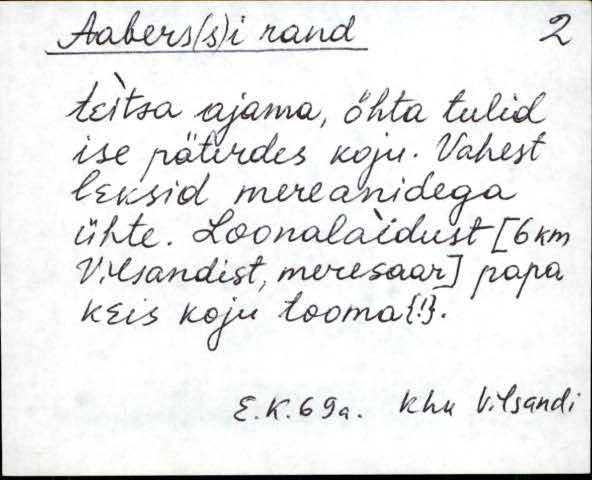 Aabers(s)i rand 2
tɛìtsa ajama, öhta tulid
ise päterdes koju. Vahest
lɛksid mereanidega
ühte. Loonalaìdust [6 km
Vilsandist, meresaar] papa
kɛis koju tooma{!}.
E.K. 69a. Khu Vilsandi